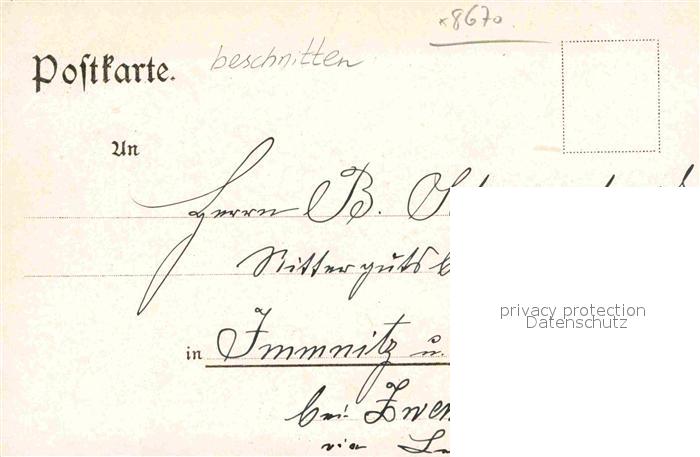 x8670.
Postkarte. beschnitten
An
Herrn B.
Ritterguts
in Immnitz u.
bei
via
privacy protection
Datenschutz